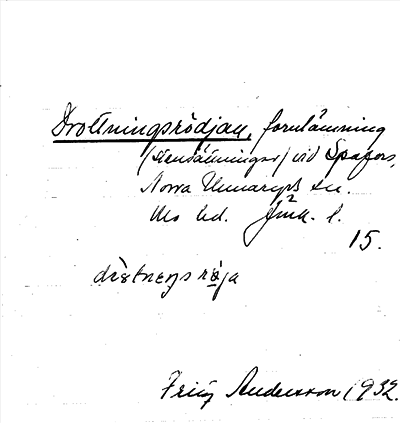 Drottningsrödjan, fornlämning
(stensättningar) vid Spafors,
Norra Unnaryds sn.
Mo hd. Jönk. l.
15.
drètneŋs röja
Fritz Andersson 1932.